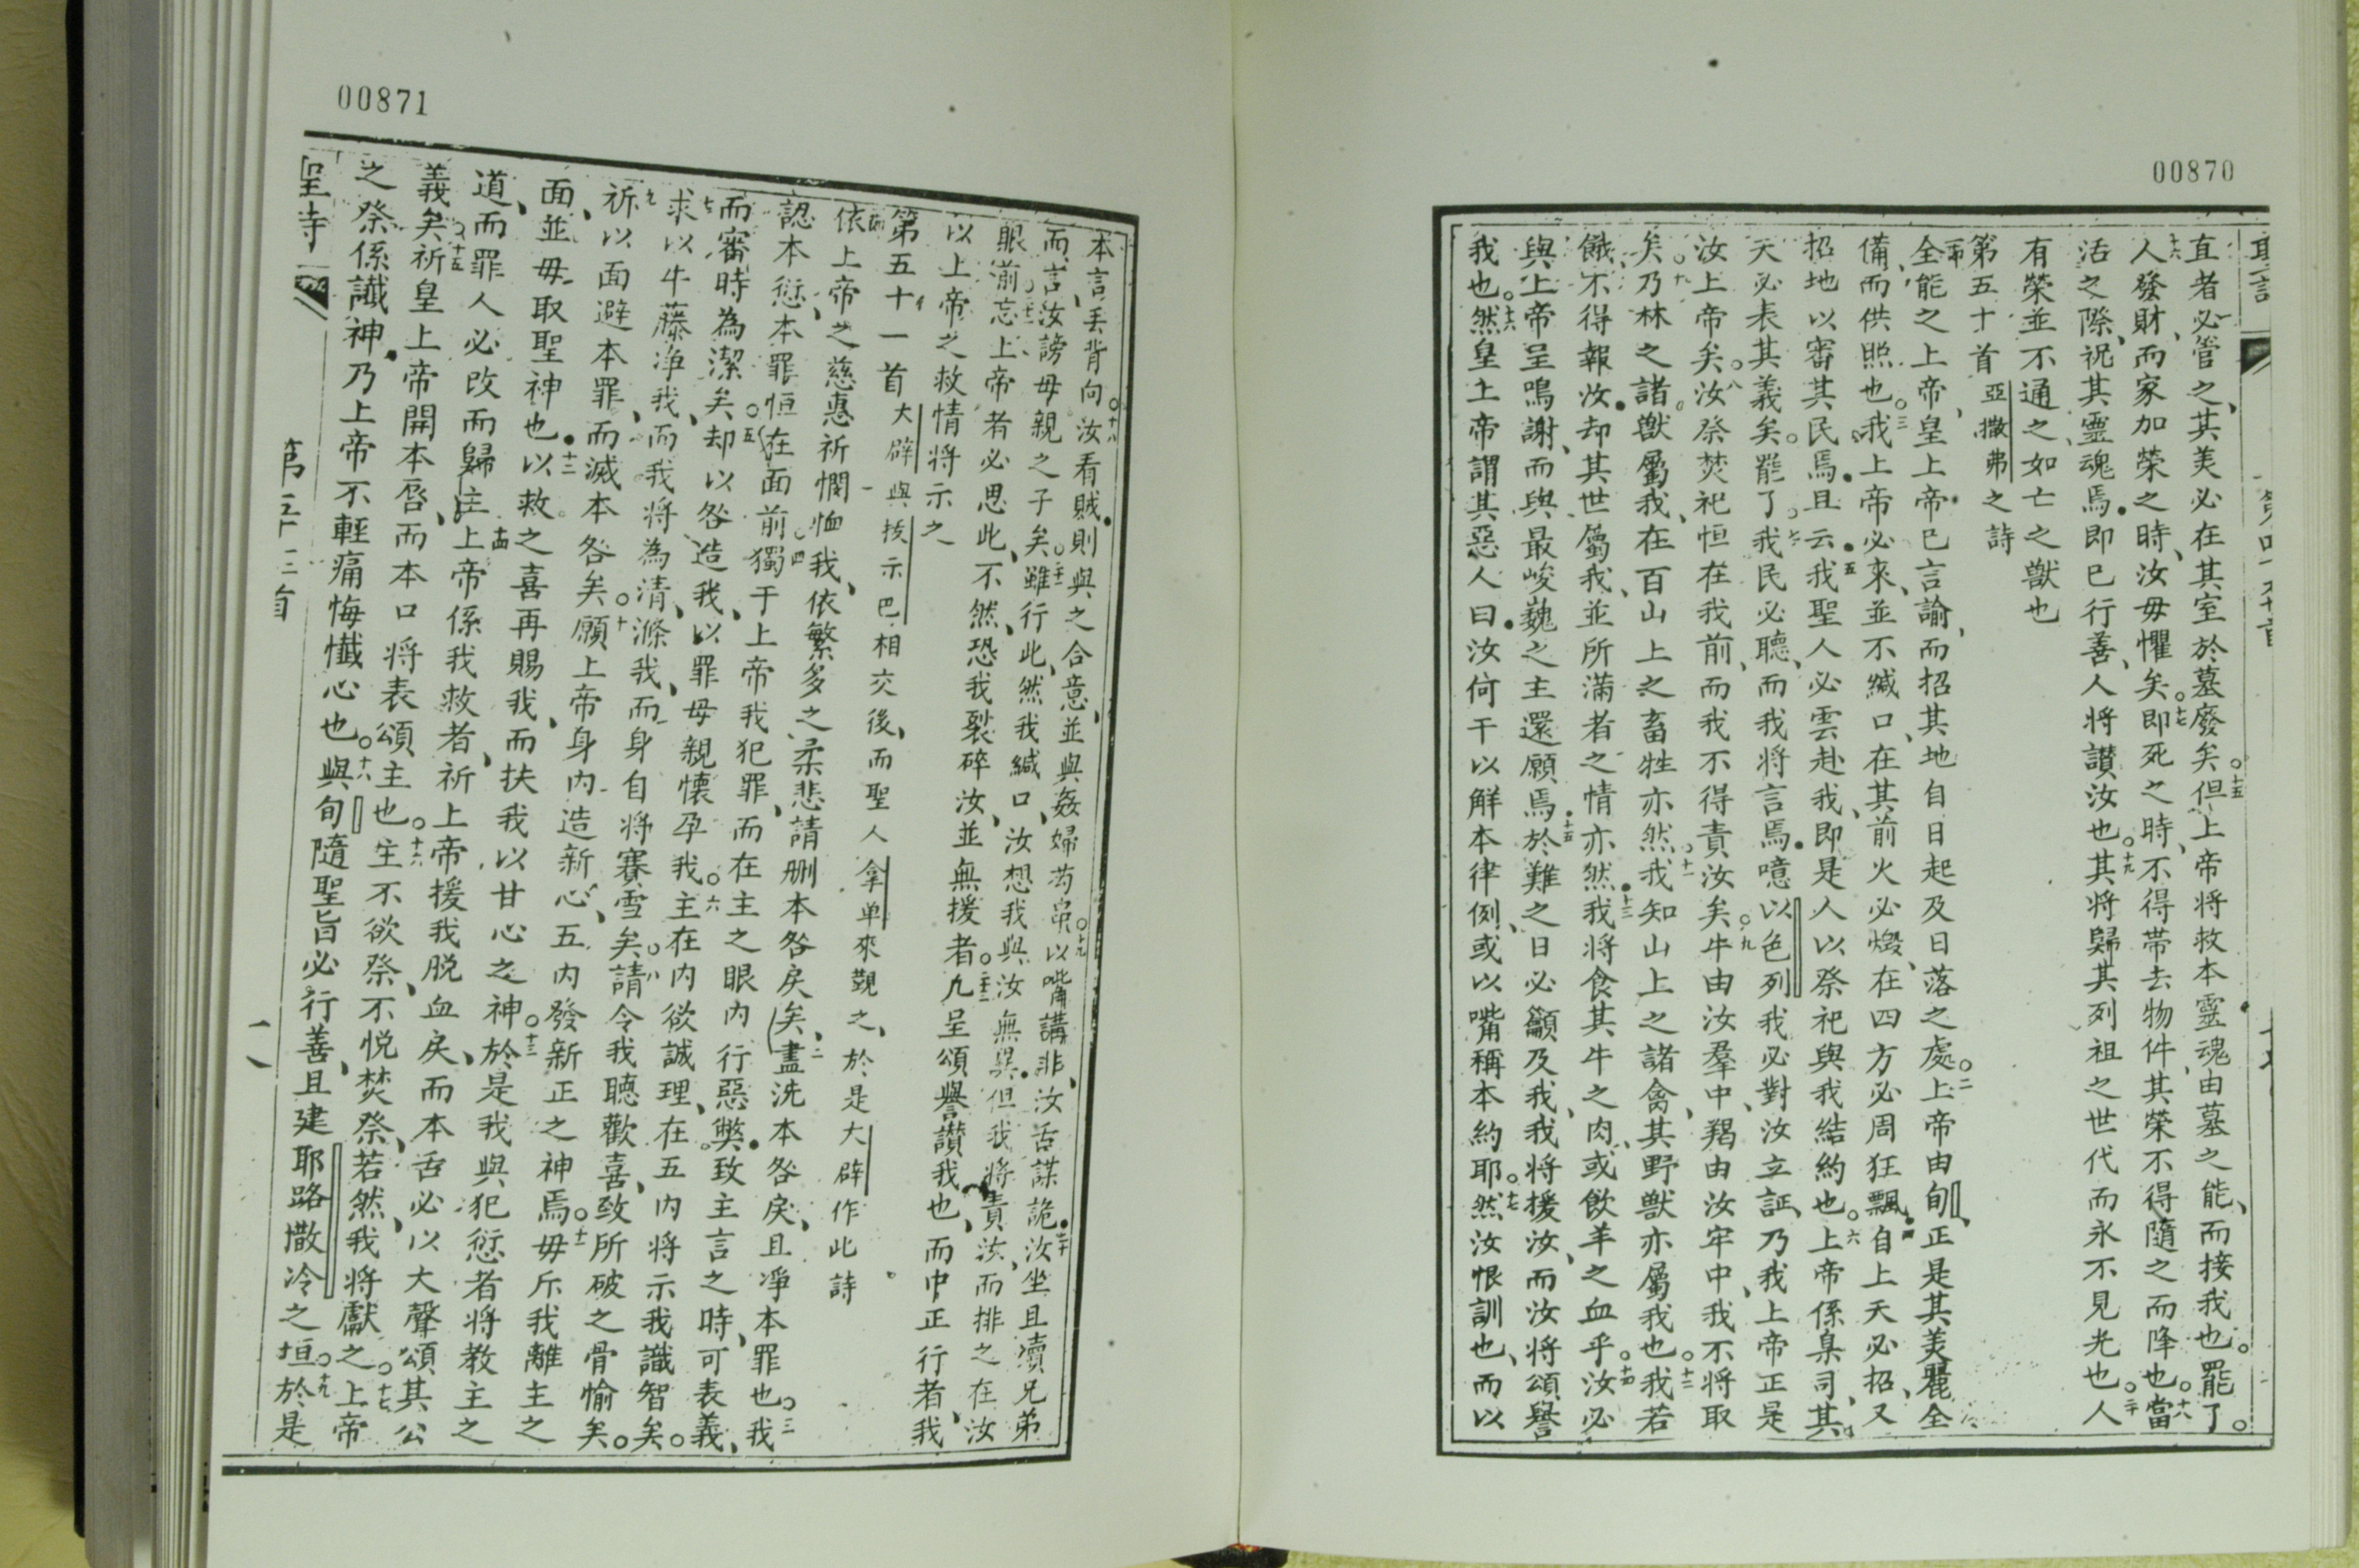 00870
直者必管之、其美必在其室於墓廢矣。十五但上帝將救本靈魂由墓之能、而接我也。罷了。
十六人發財、而家加榮之時、汝毋懼矣。十七即死之時、不得帶去物件、其榮不得隨之而降也。十八當
活之際、祝其靈魂焉、即已行善、人將讚汝也。十九其將歸其列祖之世代而永不見光也。二十人
有榮並不通之如亡之獸也
第五十首 亞撒弗之詩
全能之上帝、皇上帝已言諭、而招其地自日起及日落之處。二上帝由旬、正是其美麗全
備、而供照也。三我上帝必來、並不緘口、在其前火必燬、在四方必周狂飄。四自上天必招、又
招地以審其民焉、且云、五我聖人必雲赴我、即是人以祭祀與我結約也。六上帝係臬司、其
天必表其義矣。罷了。七我民必聽、而我將言焉、噫以色列我必對汝立証、乃我上帝正是
汝上帝矣。八汝祭焚祀恒在我前、而我不得責汝矣。九牛由汝羣中、羯由汝牢中、我不將取
矣。十乃林之諸獸屬我、在百山上之畜牲亦然。十一我知山上之諸禽、其野獸亦屬我也。十二我若
餓、不得報汝、却其世屬我、並所滿者之情亦然。十三我將食其牛之肉、或飲羊之血乎。十四汝必
與上帝呈鳴謝、而與最峻巍之主還願焉、十五於難之日必籲及我、我將援汝、而汝將頌譽
我也。十六然皇上帝謂其惡人曰、汝何干以解本律例、或以嘴稱本約耶。十七然汝恨訓也、而以
00871
本言丟背向汝。十八看賊、則與之合意、並與姦婦苟帛。十九以嘴講非、汝舌謀詭、二十汝坐且瀆兄弟
而言、汝謗母親之子矣。二十一雖行此、然我緘口、汝想我與汝無異、但我將責汝、而排之在汝
眼前。二十二忘上帝者必思此、不然、恐我裂碎汝、並無援者。二十三凡呈頌譽讚我也、而中正行者、我
以上帝之救情將示之
第五十一首 大辟與拔示巴相交後、而聖人拿单來覲之、於是大辟作此詩
依上帝之慈惠祈憫恤我、依繁多之柔悲請删本咎戾矣、二盡洗本咎戾、且凈本罪也。三我
認本愆、本罪恒在面前。四獨于上帝我犯罪、而在主之眼内行惡獘、致主言之時、可表義、
而審時為潔矣。五却以咎造我、以罪母親懷孕我。六主在内欲誠理、在五内將示我識智矣。
七求以牛藤凈我、而我將為清、滌我、而身自將賽雪矣。八請令我聽歡喜、致所破之骨愉矣。
九祈以面避本罪、而滅本咎矣。十願上帝身内造新心、五内發新正之神焉。十一毋斥我離主之
面、並毋取聖神也、十二以救之喜再賜我、而扶我以甘心之神。十三於是我與犯愆者將教主之
道、而罪人必改而歸主。十四上帝係我救者、祈上帝援我脱血戾、而本舌必以大聲頌其公
義矣。十五祈皇上帝開本唇、而本口將表頌主也。十六主不欲祭、不悅焚祭、若然、我將獻之。十七上帝
之祭係讖神、乃上帝不輕痛悔懺心也。十八與旬隨聖旨必行善、且建耶路撒冷之垣。十九於是